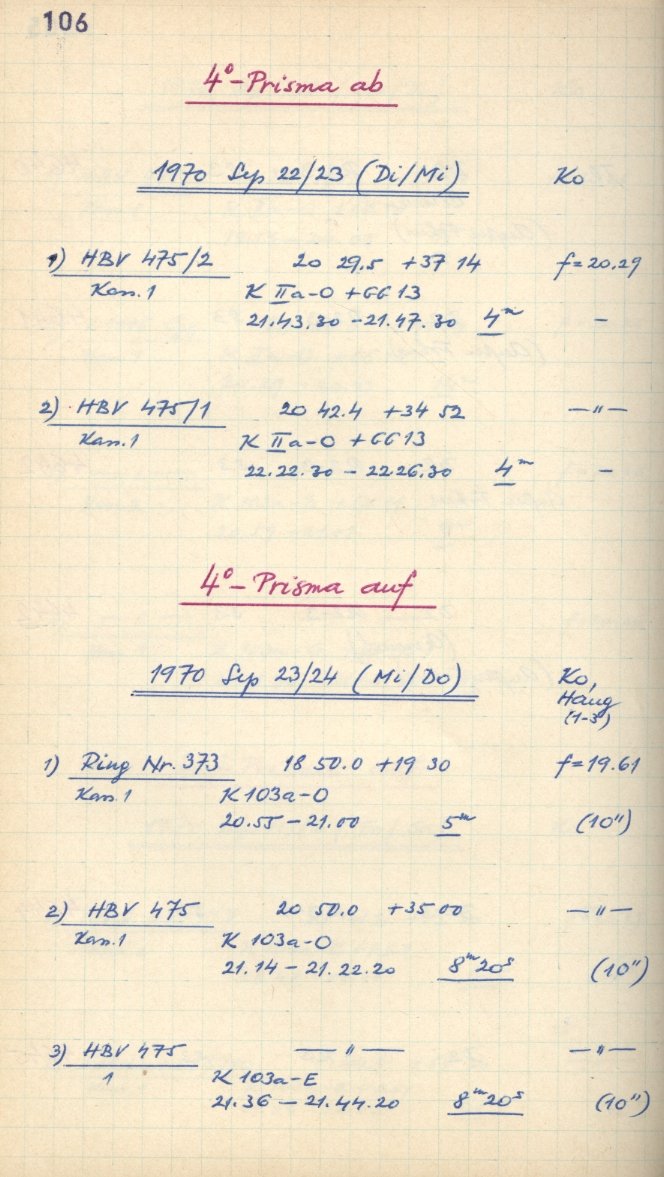 106
4°-Prisma ab
1970 Sep 22/23 (Di/Mi) Ko
1) HBV 475/2 20 29.5 +37 14 f=20.29
Kass.1 K IIa-O + GG 13
21.43.30 - 21.47.30 4ᵐ -
2) HBV 475/1 20 42.4 +34 52 —〃—
Kass.1 K IIa-O + GG 13
22.22.30 - 22.26.30 4ᵐ -
4°-Prisma auf
1970 Sep 23/24 (Mi/Do) Ko,
Haug
(1-3)
1) Ring Nr. 373 18 50.0 +19 30 f=19.61
Kass.1 K 103a-O
20.55 - 21.00 5ᵐ (10")
2) HBV 475 20 50.0 +35 00 —〃—
Kass.1 K 103a-O
21.14 - 21.22.20 8ᵐ20ˢ (10")
3) HBV 475 —〃— —〃—
1 K 103a-E
21.36 - 21.44.20 8ᵐ20ˢ (10")